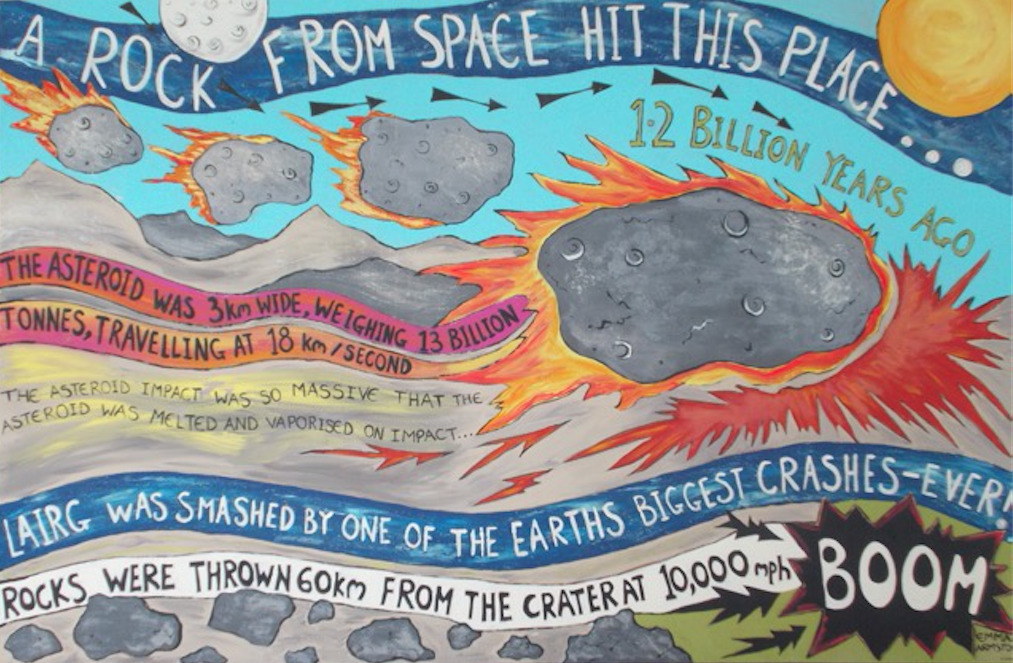 A ROCK FROM SPACE HIT THIS PLACE...
1.2 BILLION YEARS AGO
THE ASTEROID WAS 3km WIDE, WEIGHING 13 BILLION
TONNES, TRAVELLING AT 18 km/SECOND
THE ASTEROID IMPACT WAS SO MASSIVE THAT THE
ASTEROID WAS MELTED AND VAPORISED ON IMPACT...
LAIRG WAS SMASHED BY ONE OF THE EARTHS BIGGEST CRASHES-EVER!
ROCKS WERE THROWN 60km FROM THE CRATER AT 10,000 mph
BOOM
EMMA